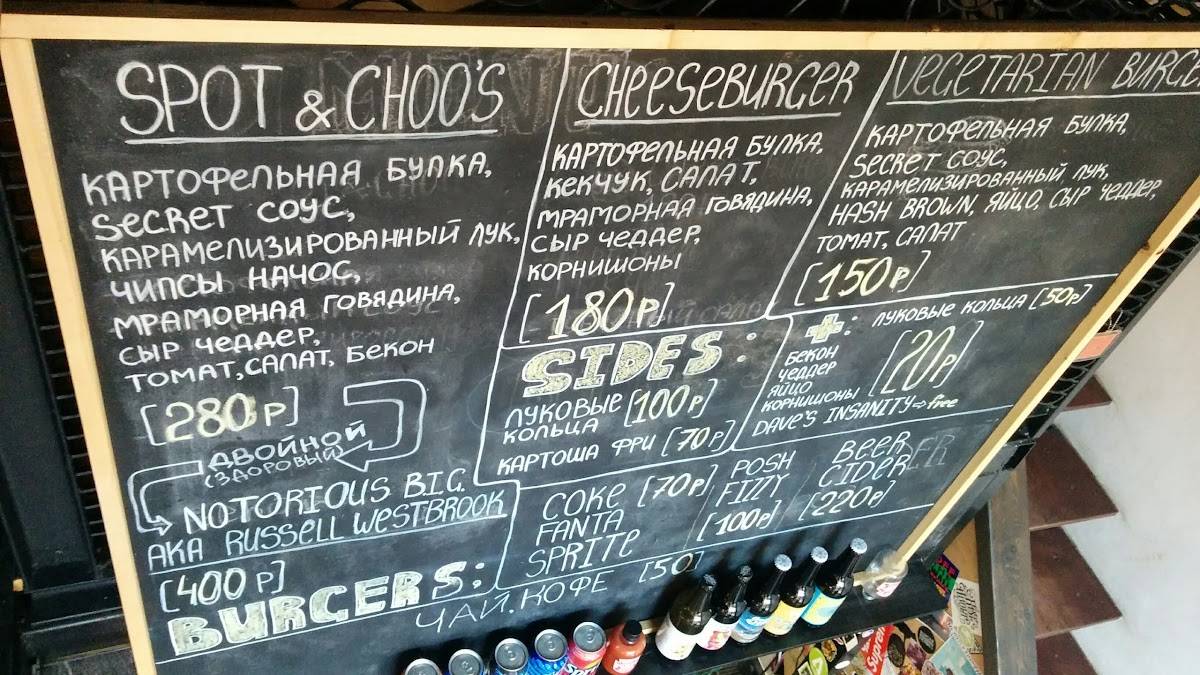 SPOT & CHOO'S
КАРТОФЕЛЬНАЯ БУЛКА,
SECRET СОУС,
КАРАМЕЛИЗИРОВАННЫЙ ЛУК,
ЧИПСЫ НАЧОС,
МРАМОРНАЯ ГОВЯДИНА,
СЫР ЧЕДДЕР,
ТОМАТ, САЛАТ, БЕКОН
[280 Р]
ДВОЙНОЙ
(ЗДОРОВЫЙ)
NOTORIOUS B.I.G.
AKA RUSSELL WESTBROOK
[400 Р]
BURGERS:
CHEESEBURGER
КАРТОФЕЛЬНАЯ БУЛКА,
КЕКЧУК, САЛАТ,
МРАМОРНАЯ ГОВЯДИНА,
СЫР ЧЕДДЕР,
КОРНИШОНЫ
[180 Р]
VEGETARIAN BURGE
КАРТОФЕЛЬНАЯ БУЛКА,
SECRET СОУС,
КАРАМЕЛИЗИРОВАННЫЙ ЛУК,
HASH BROWN, ЯЙЦО, СЫР ЧЕДДЕР,
ТОМАТ, САЛАТ
[150 Р]
SIDES:
ЛУКОВЫЕ КОЛЬЦА [100 Р]
КАРТОША ФРИ [70 Р]
+: ЛУКОВЫЕ КОЛЬЦА [50 Р]
БЕКОН
ЧЕДДЕР
ЯЙЦО
КОРНИШОНЫ
[20 Р]
DAVE'S INSANITY ⇒ free
COKE [70 Р]
FANTA
SPRITE
POSH
FIZZY
[100 Р]
BEER
CIDER
[220 Р]
ЧАЙ. КОФЕ [50]
Supreme